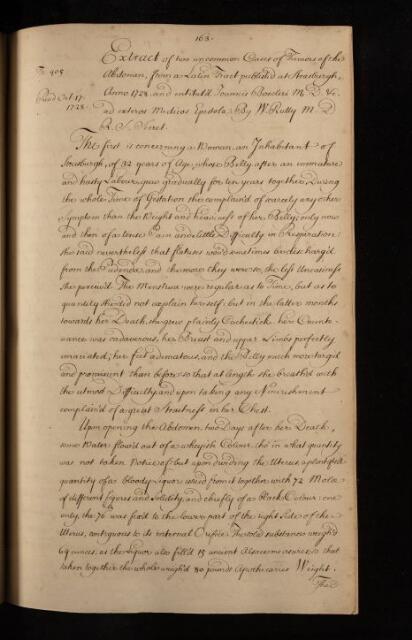 163.
Extract of two uncommon Cases of Tumors of the
Abdomen, from a Latin Tract publish'd at Strasburgh,
Anno 1728. and entituld Joannis Boecleri M. D. &c.
ad exteros Medicos Epistola. By W. Rutty M. D.
R. S. Secret.
Fo. 405
Read Oct. 17.
1728.
The first is concerning a Woman, an Inhabitant of
Strasburgh, of 32 years of Age, whose Belly, after an immature
and hasty Labour, grew gradually for ten years together, During
the whole Time of Gestation she complain'd of scarcely any other
Symptom than the Weight and heaviness of her Belly; only now
and then of a tense Pain and little Difficulty in Respiration
she said nevertheless that flatus's would sometimes be discharg'd
from the Pudenda, and the more they were so, the less Uneasiness
she perceiv'd. The Menstrua were regular as to Time, but as to
quantity she did not explain herself: but in the latter months
towards her Death, she grew plainly Cachectick her Counte-
nance was cadaverous, her Breast and upper Limbs perfectly
emaciated; her feet œdematous, and the Belly much more turgid
and prominent than before; so that at length she breath'd with
the utmost Difficulty, and upon taking any Nourishment
complain'd of a great Straitness in her Chest.
Upon opening the Abdomen two Days after her Death,
some Water flow'd out of a wheyish Colour, tho in what quantity
was not taken Notice of: but upon dividing the Uterus a plentifull
quantity of a bloody Liquor issued from it together with 72 Molæ
of different figures and solidity, and chiefly of a Black Colour: one
only, the 73 was fix'd to the lower part of the right side of the
Uterus, contiguous to its internal Orifice. The solid substances weigh'd
69 ounces, as the Liquor also fill'd 15 ancient Alsacian measures: so that
taken together the whole weigh'd 80 pounds Apothecaries Weight.
The